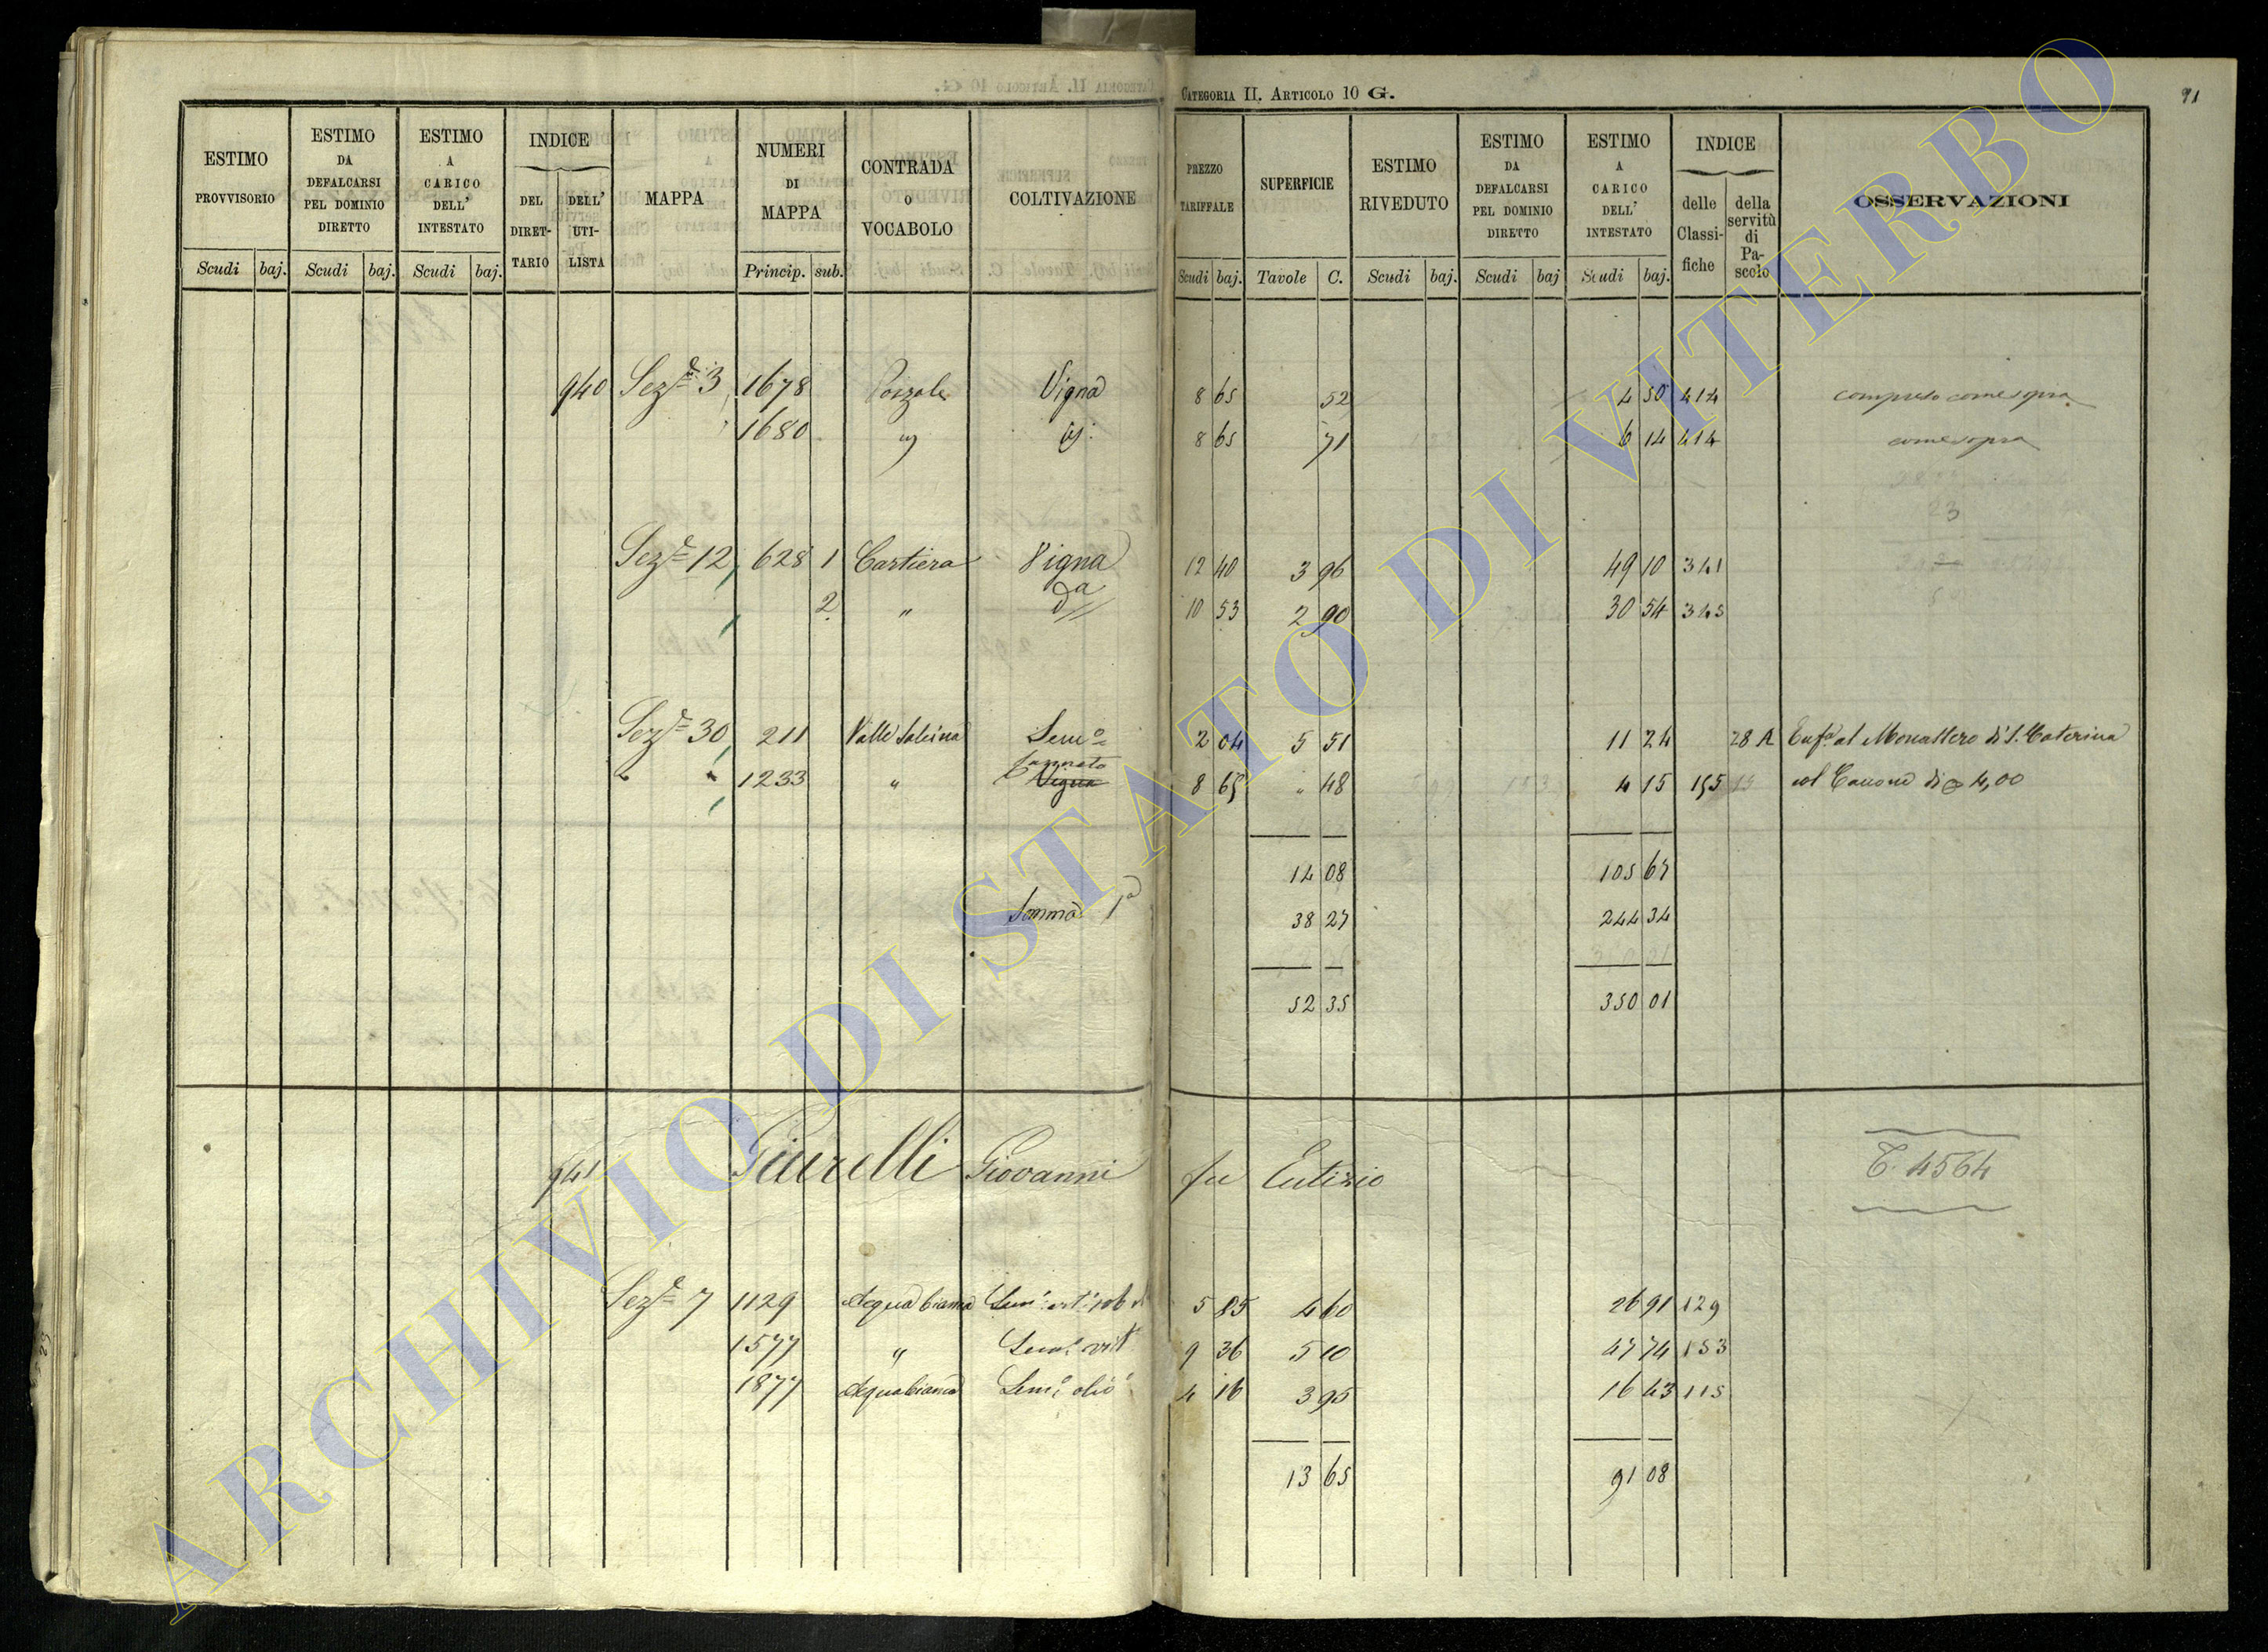 CATEGORIA II. ARTICOLO 10 G.
91
ESTIMO PROVVISORIO
ESTIMO DA DEFALCARSI PEL DOMINIO DIRETTO
ESTIMO A CARICO DELL' INTESTATO
INDICE
DEL DIRET-TARIO
DELL' UTI-LISTA
MAPPA
NUMERI DI MAPPA
CONTRADA O VOCABOLO
COLTIVAZIONE
PREZZO TARIFFALE
SUPERFICIE
ESTIMO RIVEDUTO
ESTIMO DA DEFALCARSI PEL DOMINIO DIRETTO
ESTIMO A CARICO DELL' INTESTATO
INDICE
delle Classi-fiche
della servitù di Pa-scolo
OSSERVAZIONI
Scudi baj. Scudi baj. Scudi baj. Princip. sub. Scudi baj. Tavole C. Scudi baj. Scudi baj Scudi baj.
940 Sez.e 3 1678 Vigna 8 65 52 4 50 414 compreso come sopra
1680 " id. 8 65 71 6 14 414 come sopra
23
Sez.e 12 628 1 Cartiera Vigna 12 40 3 96 49 10 341
2 " da 10 53 2 90 30 54 345
Sez.e 30 211 Valle Sem.o 2 04 5 51 11 24 28 A Enf.a al Monastero di S. Caterina
" " 1233 " Vigna 8 65 " 48 4 15 155 col Canone di 4,00
14 08 105 67
Somma 1a 38 27 244 34
52 35 350 01
941 Giurelli Giovanni fu Eutizio
T. 4564
Sez.e 7 1129 Acqua bianca Sem.o vit.o 5 85 4 60 26 91 129
1577 " Sem.o vit.o 9 36 5 10 47 74 153
1877 Acqua bianca Sem.o oliv.o 4 16 3 95 16 43 115
13 65 91 08
ARCHIVIO DI STATO DI VITERBO